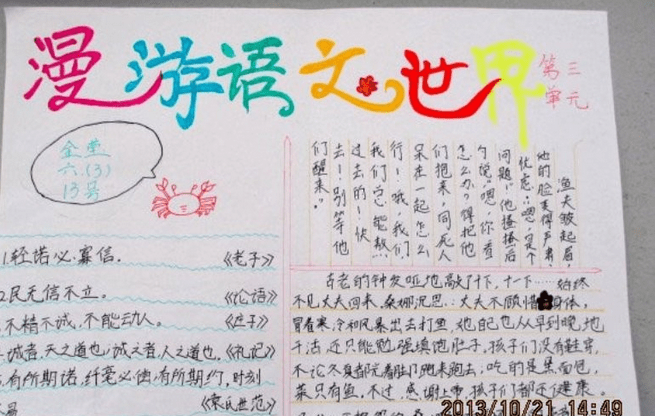 漫游语文世界
第三
单元
金堂
六.(3)
13号
渔夫皱起眉,
他的脸变得严肃,
忧虑。“嗯,是个
问题!”他搔搔后
勺说:“嗯,你看
怎么办?得把他
们抱来,同死人
呆在一起怎么
行!哦,我们,我们
我们总能熬
过去的!快
去!别等他
们醒来。”
1.轻诺必寡信. 《老子》
2.民无信不立. 《论语》
不精不诚,不能动人. 《庄子》
诚者,天之道也;诚之者,人之道也. 《礼记》
有所期诺,纤毫必偿;有所期约,时刻
《袁氏世范》
古老的钟发哑地敲了十下,十一下……始终
不见丈夫回来.桑娜沉思:丈夫不顾惜身体,
冒着寒冷和风暴出去打鱼,她自己也从早到晚地
干活,还只能勉强填饱肚子,孩子们没有鞋穿,
不论冬夏都光着脚跑来跑去;吃的是黑面包,
菜只有鱼.不过,感谢上帝,孩子们都还健康。
2013/10/21 14:49